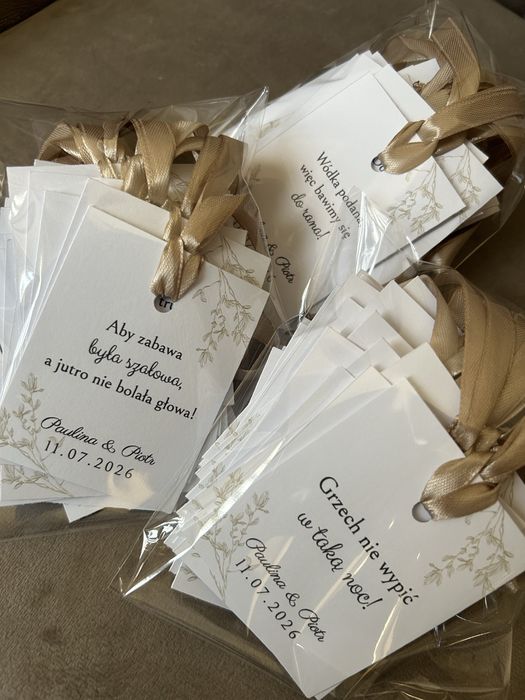 Wódka podana
więc bawimy się
do rana!
& Piotr
Aby zabawa
była szalowa,
a jutro nie bolała głowa!
Paulina & Piotr
11.07.2026
Grzech nie wypić
w taką noc!
Paulina & Piotr
11.07.2026